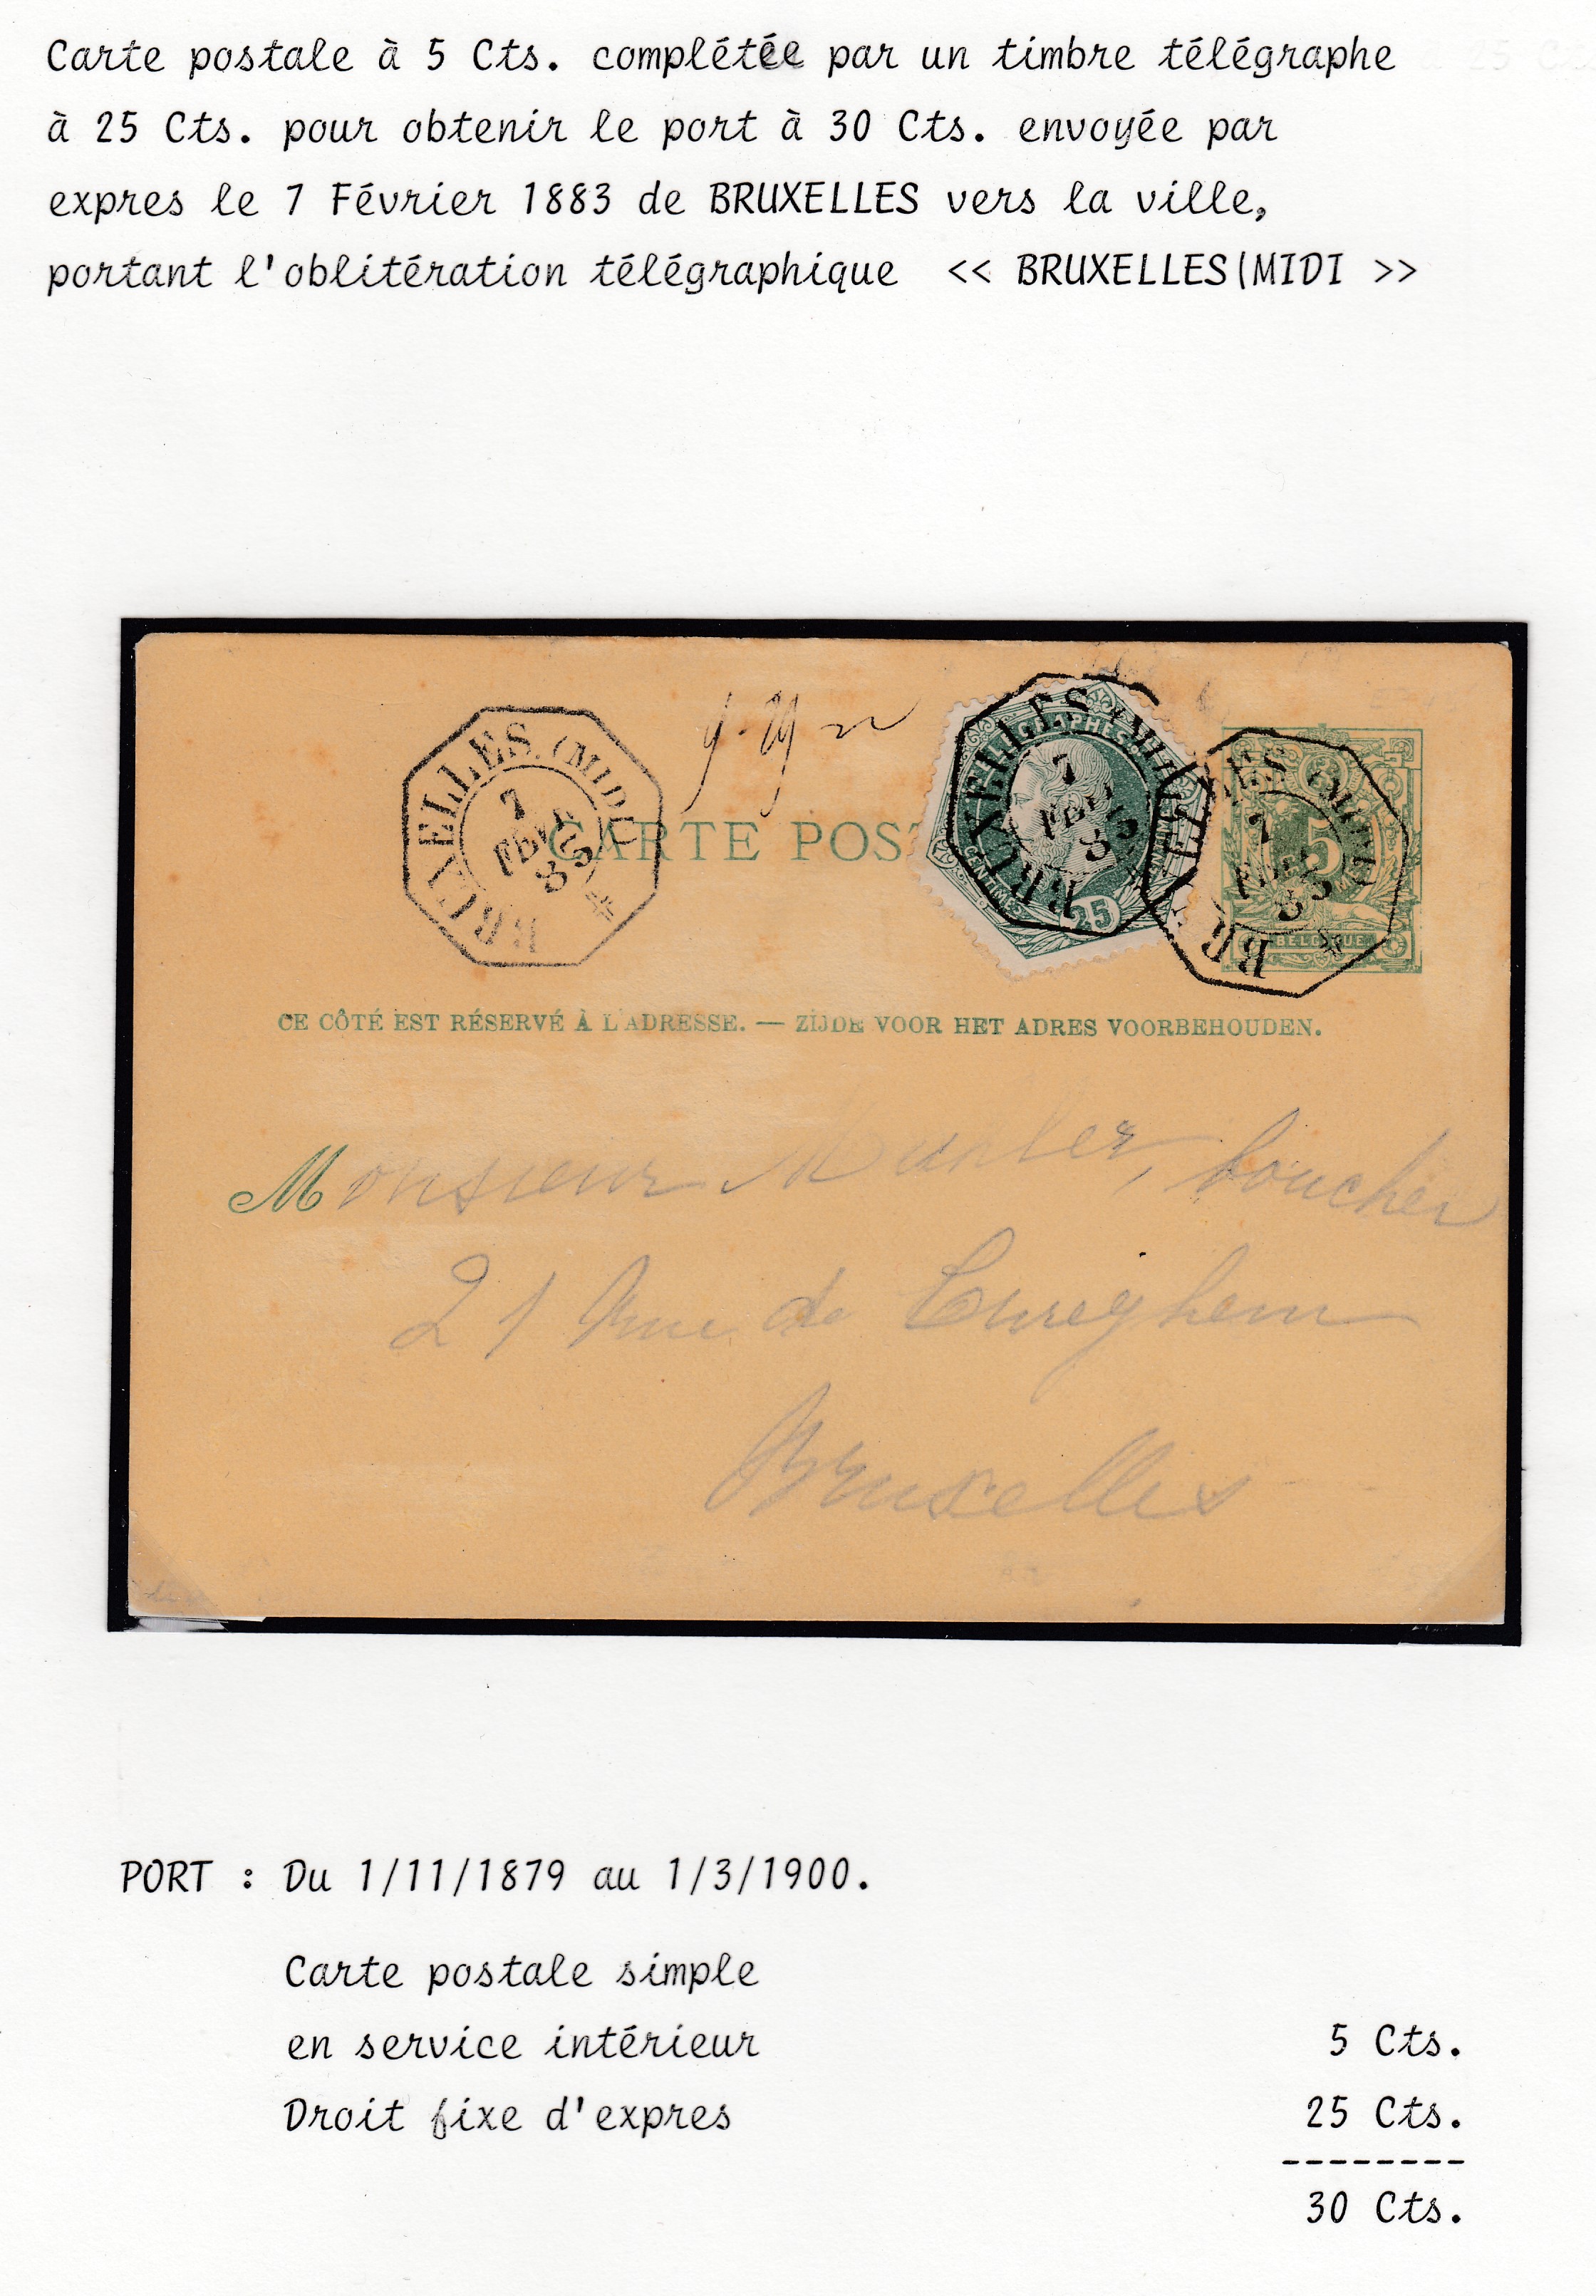 Carte postale à 5 Cts. complétée par un timbre télégraphe
à 25 Cts. pour obtenir le port à 30 Cts. envoyée par
expres le 7 Février 1883 de BRUXELLES vers la ville,
portant l'oblitération télégraphique << BRUXELLES(MIDI >>
BRUXELLES (MIDI)
7
83
TÉLÉGRAPHES
BRUXELLES (MIDI)
7
FEVR
83
25
CENTIMES
5
BELGIQUE
7
83
CARTE POST
CE CÔTÉ EST RÉSERVÉ À L'ADRESSE. — ZIJDE VOOR HET ADRES VOORBEHOUDEN.
Monsieur boucher
21 Rue de Cureghem
Bruxelles
PORT : Du 1/11/1879 au 1/3/1900.
Carte postale simple
en service intérieur 5 Cts.
Droit fixe d'expres 25 Cts.
--------
30 Cts.